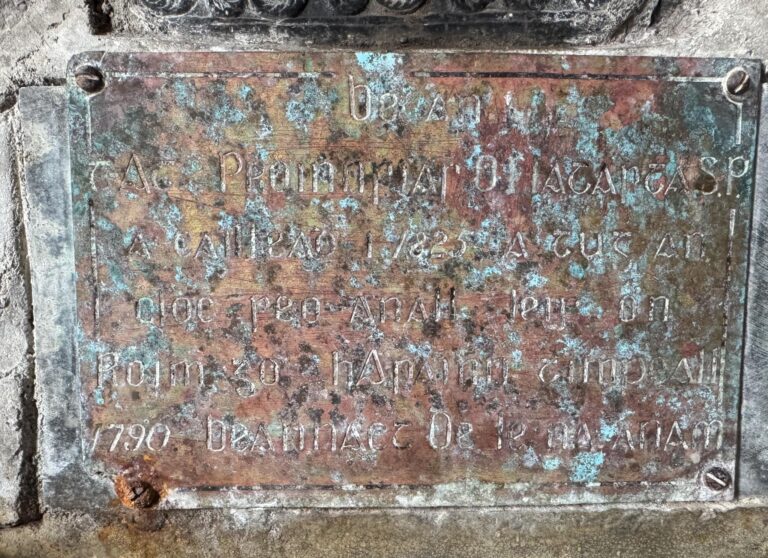 Be an
tAt Proinnsias O Flatarta S.P.
a caillead i 1825 a tug an
cloc seo anall leis on
Roim go hArainn timceall
1790 beannact De le na anam